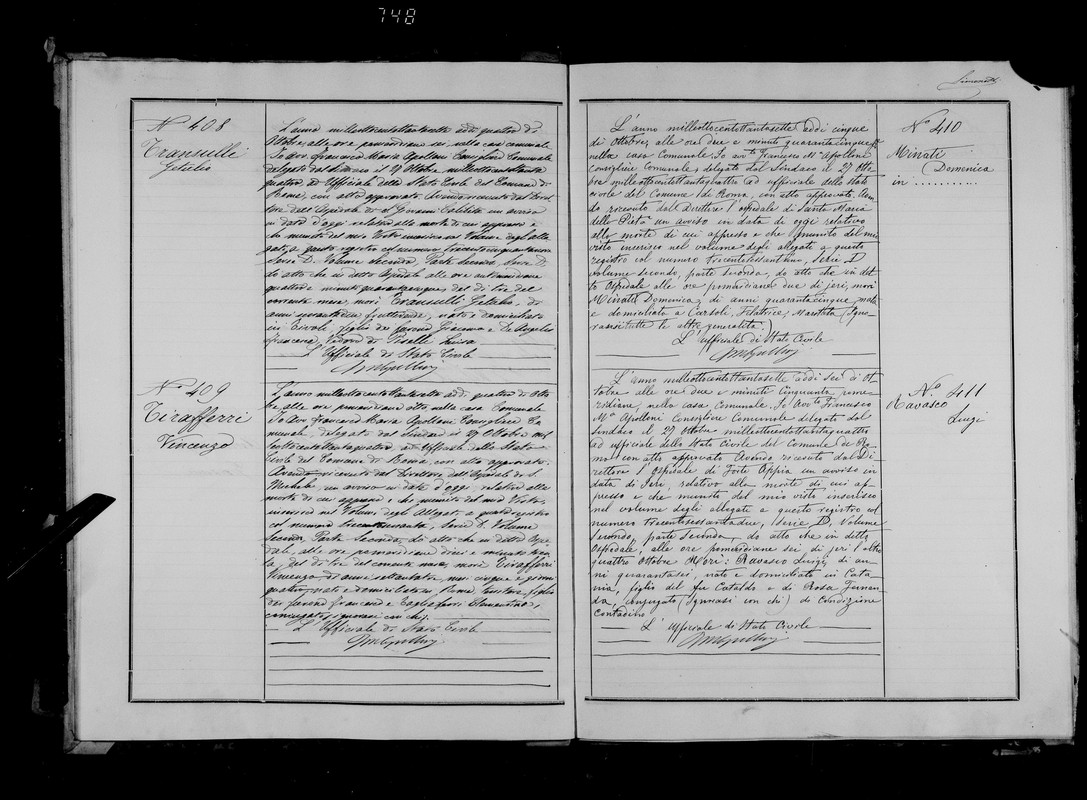 748
Nº 408
Transulli
L'anno milleottocentottantasette addì quattro di
Ottobre, alle ore pomeridiane sei, nella casa comunale.
Io Avv. Francesco Maria Apolloni Consigliere Comunale
delegato dal Sindaco il 27 Ottobre milleottocentottanta
quattro, ad Ufficiale dello Stato Civile del Comune di
Roma, con atto approvato. Avendo ricevuto dal Diret
tore dell'Ospedale di S. Giovanni Calibita un avviso
in data d'oggi relativo alla morte di cui appresso e
che munito del mio Visto inserisco nel Volume degli alle
gati a questo registro col numero trecentocinquantanove
Serie D. Volume Secondo, Parte Seconda,
do atto che in detto Ospedale alle ore antimeridiane
quattro e minuti quarantacinque, del dì tre del
corrente mese, morì Transulli di
anni nato e domiciliato
in Tivoli, figlio dei furono Giacomo e De Angelis
Francesca, Vedovo di Luisa
L'Ufficiale di Stato Civile
Nº 409
Tirafferri
Vincenzo
L'anno milleottocentottantasette addì quattro di Otto
bre alle ore pomeridiane otto, nella casa Comunale
Io Avv. Francesco Maria Apolloni Consigliere Co
munale, delegato dal Sindaco il 27 Ottobre mil
leottocentottantaquattro, ad Ufficiale dello Stato
Civile del Comune di Roma, con atto approvato.
Avendo ricevuto dal Direttore dell'Ospedale di S.
Michele un avviso in data d'oggi, relativo alla
morte di cui appresso e che munito del mio Visto,
inserisco nel Volume degli Allegati a questo registro
col numero trecentosessanta, Serie D. Volume
Secondo, Parte Seconda, do atto che in detto Ospe
dale, alle ore pomeridiane dieci e minuti tren
ta, del dì tre del corrente mese, morì Tirafferri
Vincenzo di anni settantatre, mesi cinque e giorni
quattro, nato e domiciliato in Roma, figlio
dei furono Francesco e
coniugato, ignorasi con chi.
L'Ufficiale di Stato Civile
Nº 410
Minati
Domenica
in ..........
L'anno milleottocentottantasette addì cinque
di Ottobre, alle ore due e minuti quarantacinque p.
nella casa Comunale. Io avv.to Francesco M.a Apolloni
consigliere comunale, delegato dal Sindaco il 27 Otto
bre milleottocentottantaquattro ad ufficiale dello Stato
civile del Comune di Roma, con atto approvato. Aven
do ricevuto dal Direttore l'ospedale di Santa Maria
della Pietà un avviso in data di oggi relativo
alla morte di cui appresso e che munito del mio
visto inserisco nel volume degli allegati a questo
registro col numero trecentosessantuno, Serie D
volume secondo, parte seconda, do atto che in det
to Ospedale alle ore pomeridiane due di jeri, morì
Minati Domenica, di anni quarantacinque, nata
e domiciliata a Carsoli, Filatrice, Maritata (Igno
ransi tutte le altre generalità.
L'ufficiale di Stato Civile
Nº 411
Ravasco
Luigi
L'anno milleottocentottantasette addì sei di Ot
tobre alle ore due e minuti cinquanta pome
ridiane, nella casa Comunale. Io Avv.to Francesco
M.a Apolloni, Consigliere Comunale delegato dal
Sindaco il 27 Ottobre milleottocentottantaquattro
ad ufficiale dello Stato Civile del Comune di Ro
ma con atto approvato Avendo ricevuto dal Di
rettore l'Ospedale di Forte Appia un avviso in
data di Jeri, relativo alla morte di cui ap
presso e che munito del mio visto inserisco
nel volume degli allegati a questo registro col
numero trecentosessantadue, Serie D, Volume
Secondo, parte Seconda, do atto che in detto
Ospedale, alle ore pomeridiane sei di jeri l'altro
quattro Ottobre Morì: Ravasco Luigi di an
ni quarantasei, nato e domiciliato in Cata
nia, figlio del fu Cataldo e di Rosa Fernan
da, coniugato (Ignorasi con chi) di condizione
contadino
L'ufficiale di Stato Civile